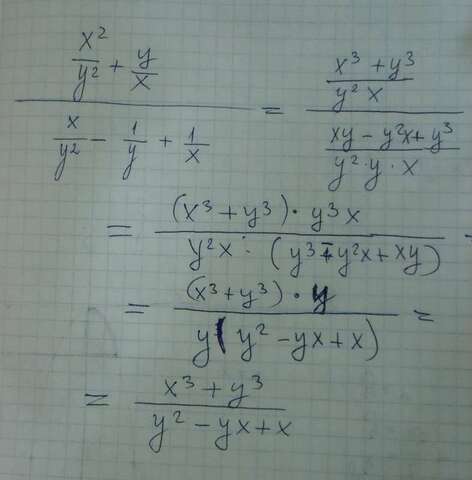 x²/y² + y/x / x/y² - 1/y + 1/x = x³ + y³ / y² x / xy - y²x + y³ / y² · y · x
= (x³ + y³) · y³ x / y² x · (y³ - y² x + xy)
= (x³ + y³) · y / y ( y² - yx + x) =
= x³ + y³ / y² - yx + x